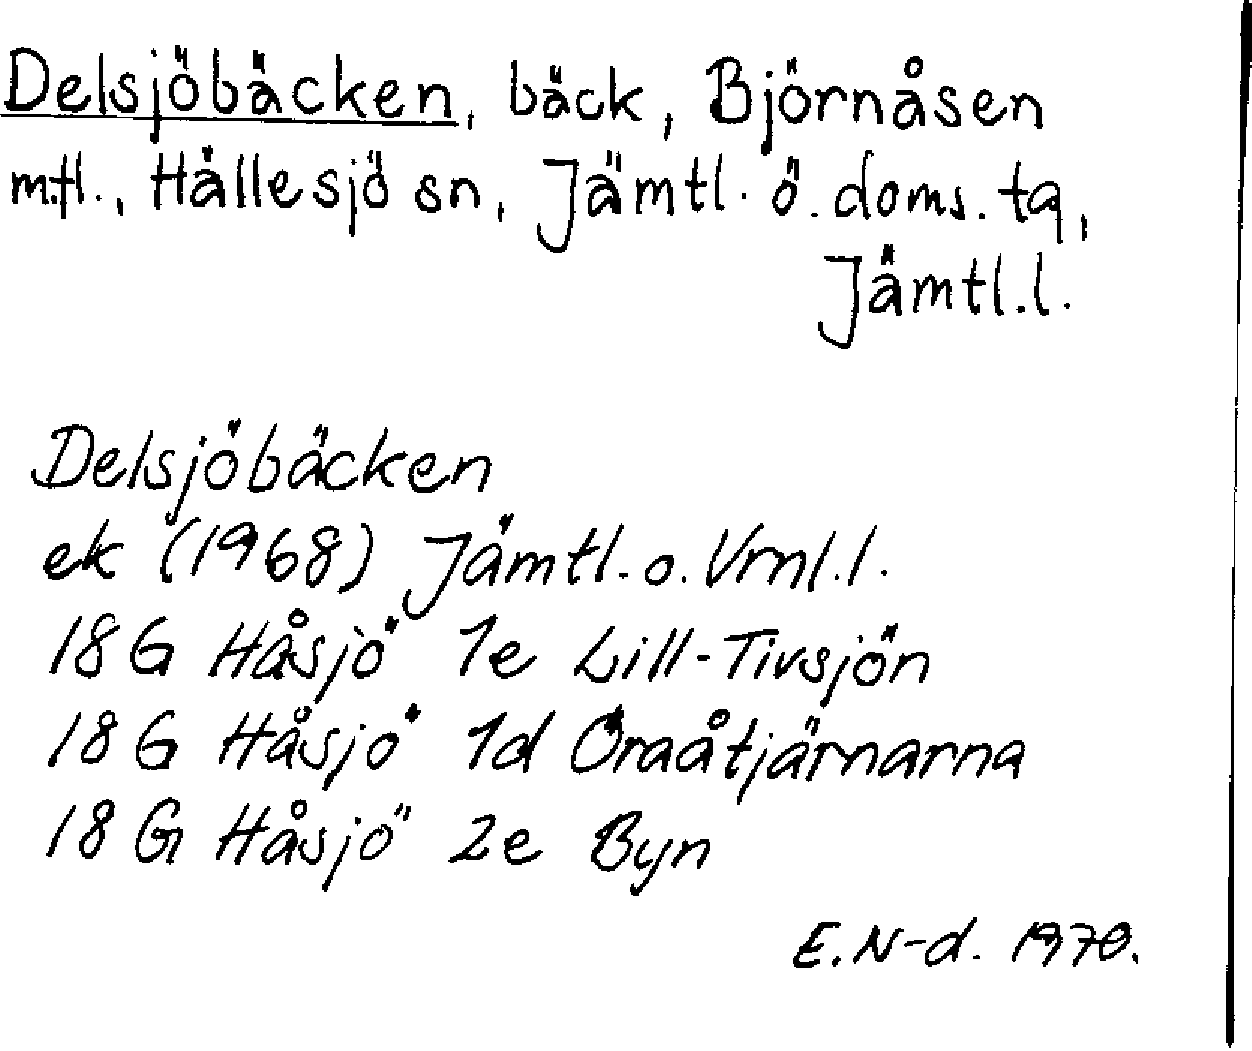 Delsjöbäcken, bäck, Björnåsen
mtl., Hällesjö sn, Jämtl. ö. doms. tq,
Jämtl.l.
Delsjöbäcken
ek (1968) Jämtl. o. Vrnl.l.
18 G Håsjö 1e Lill-Tivsjön
18 G Håsjö 1d Öraåtjärnarna
18 G Håsjö 2e Byn
E.N-d. 1970.